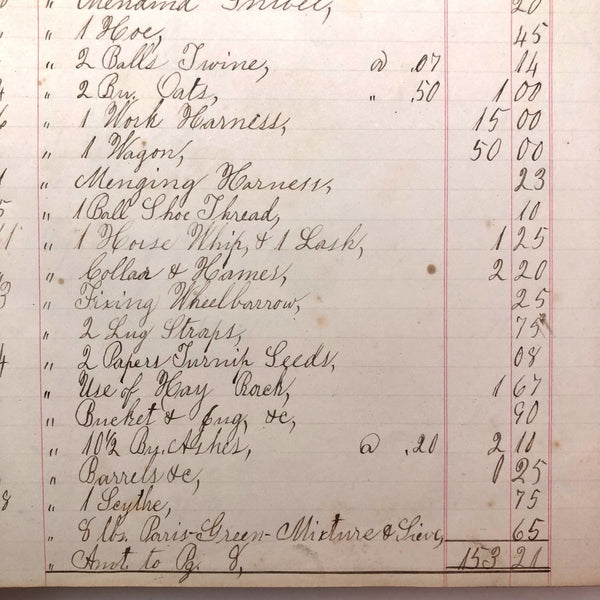 20
" 1 Hoe, 45
" 2 Balls Twine, @ .07 14
" 2 Bu. Oats, " .50 1 00
" 1 Work Harness, 15 00
" 1 Wagon, 50 00
" Menging Harness, 23
" 1 Ball Shoe Thread, 10
" 1 Horse Whip, & 1 Lash, 1 25
" Collar & Hames, 2 20
" Fixing Wheelbarrow, 25
" 2 Lug Straps, 75
" 2 Papers Turnip Seeds, 08
" Use of Hay Rack, 1 67
" Bucket & Jug, &c, 90
" 10½ By. Ashes, @ .20 2 10
" Barrels &c, 25
" 1 Scythe, 75
" 8 lbs. Paris-Green-Mixture & Sieve, 65
" Amt to Pg. 8, 153 21